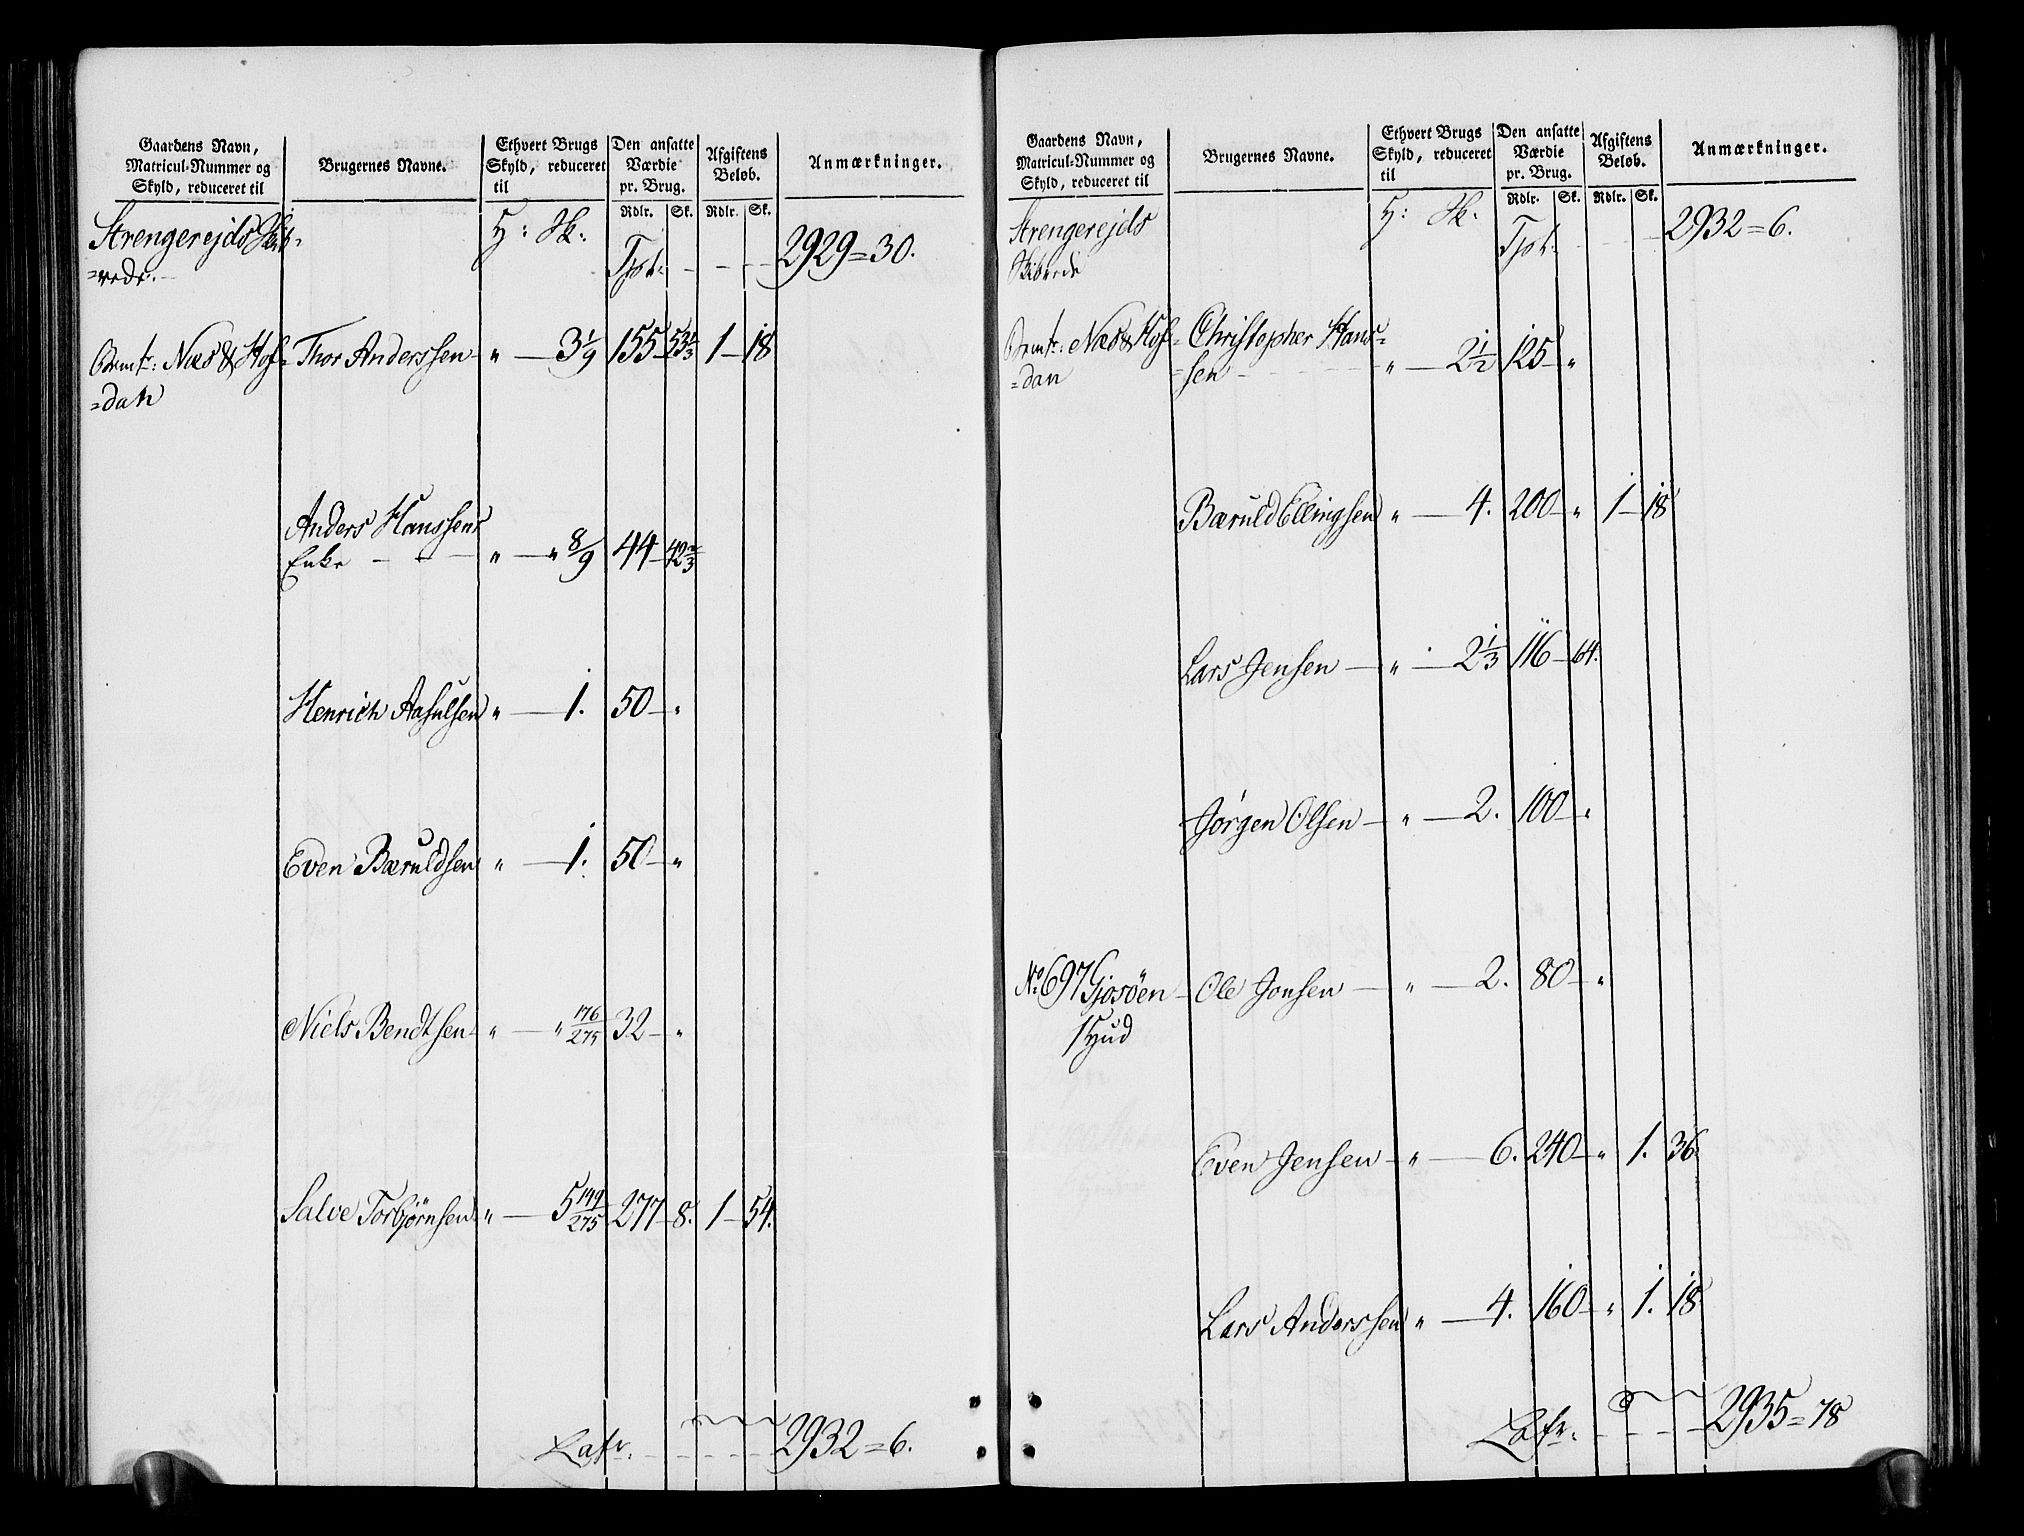 Gaardens Navn,
Matricul-Nummer og
Skyld, reduceret til
Brugernes Navne.
Ethvert Brugs
Skyld, reduceret
til
Den ansatte
Værdie
pr. Brug.
Afgiftens
Beløb.
Anmærkninger.
Rdlr. Sk. Rdlr. Sk.
Strengerejds Skib-
=rede. H: Sk: Tpt: 2929=30.
bemt: Næs & Hof= Thor Anderssen „ 3 1/9 155 53 1/3 1 18
=dan
Anders Hanssens
Enke „ „ 8/9 44 42 2/3
Henrich Aasulsen „ 1. 50 „
Even Bæruldsen „ 1. 50 „
Niels Bendtsen „ „ 176/275 32 „
Salve Torbjørnsen „ 5 149/275 277 8. 1 54.
Lafr. 2932=6.
Gaardens Navn,
Matricul-Nummer og
Skyld, reduceret til
Brugernes Navne.
Ethvert Brugs
Skyld, reduceret
til
Den ansatte
Værdie
pr. Brug.
Afgiftens
Beløb.
Anmærkninger.
Rdlr. Sk. Rdlr. Sk.
Strengerejds H: Sk: Tpt: 2932=6.
Skibrede
bemt: Næs & Hof= Christopher Hans=
=dan =sen „ 2 1/2 125 „
Bæruld Ellingsen „ 4. 200 „ 1 18
Lars Jensen „ 2 1/3 116 64.
Jørgen Olsen „ 2. 100 „
No. 697 Gjosöen Ole Jonsen „ 2. 80 „
1 Hud
Even Jensen „ 6. 240 „ 1. 36
Lars Anderssen „ 4. 160 „ 1. 18
Lafr. 2935=78